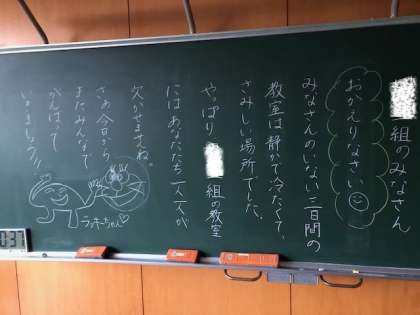 組のみなさん
おかえりなさい
みなさんのいない三日間の
教室は静かで冷たくて、
さみしい場所でした。
やっぱり 組の教室
にはあなたたち一人一人が
欠かせませんね。
さぁ今日から
またみんなで
がんばって
いきましょう!!
ラッキーちゃん